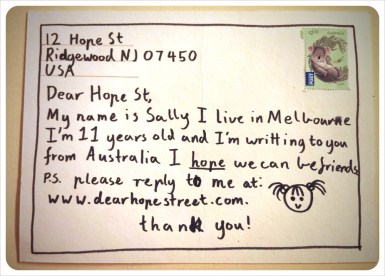 12 Hope St
Ridgewood NJ 07450
USA
Dear Hope St,
My name is Sally I live in Melbourne
I'm 11 years old and I'm writting to you
from Australia I hope we can be friends
P.S. please reply to me at:
www.dearhopestreet.com.
thank you!